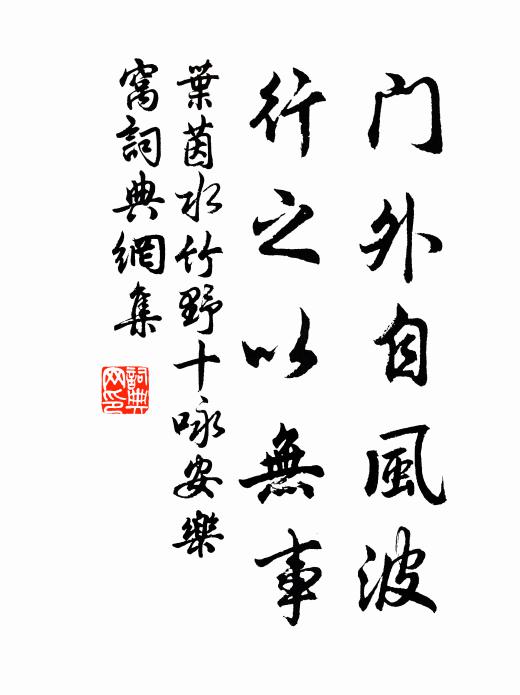 门外自風波
行之以無事
葉茵水竹野十咏安樂
窩詞典網集
詞典网印